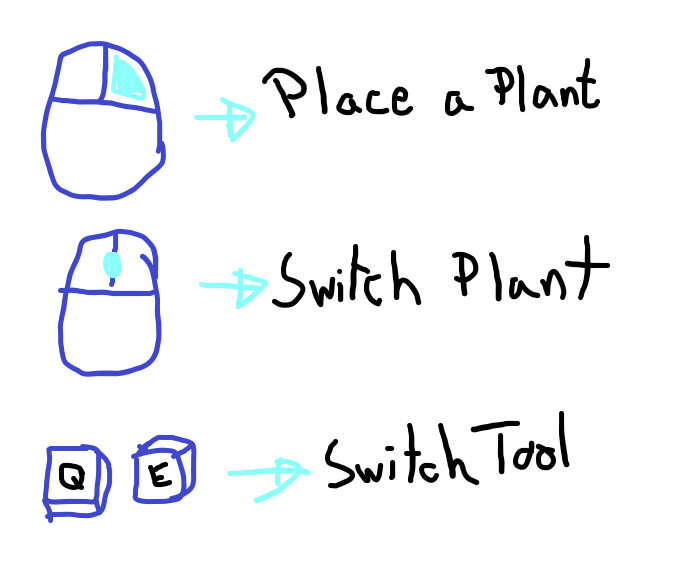 Place a Plant
Switch Plant
Q E Switch Tool